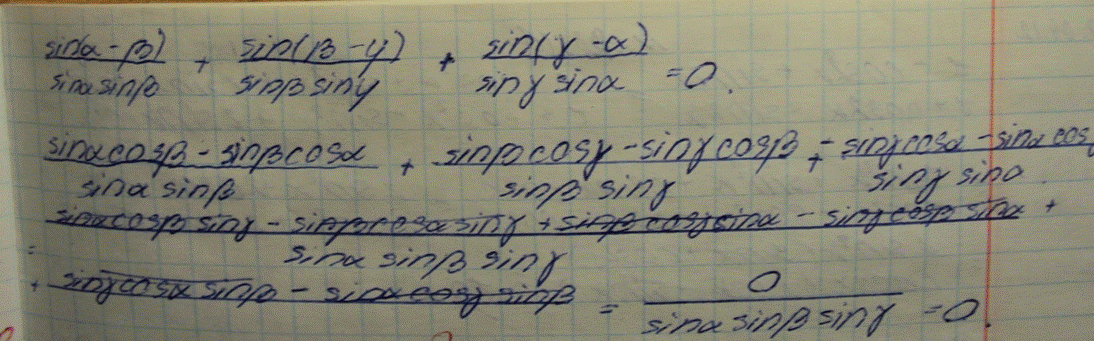 sin(α - β)/sinα sinβ + sin(β - γ)/sinβ sinγ + sin(γ - α)/sinγ sinα = 0.
sinα cosβ - sinβ cosα/sinα sinβ + sinβ cosγ - sinγ cosβ/sinβ sinγ + sinγ cosα - sinα cosγ/sinγ sinα
= sinα cosβ sinγ - sinβ cosα sinγ + sinβ cosγ sinα - sinγ cosβ sinα +/sinα sinβ sinγ
+ sinγ cosα sinβ - sinα cosγ sinβ = 0/sinα sinβ sinγ = 0.